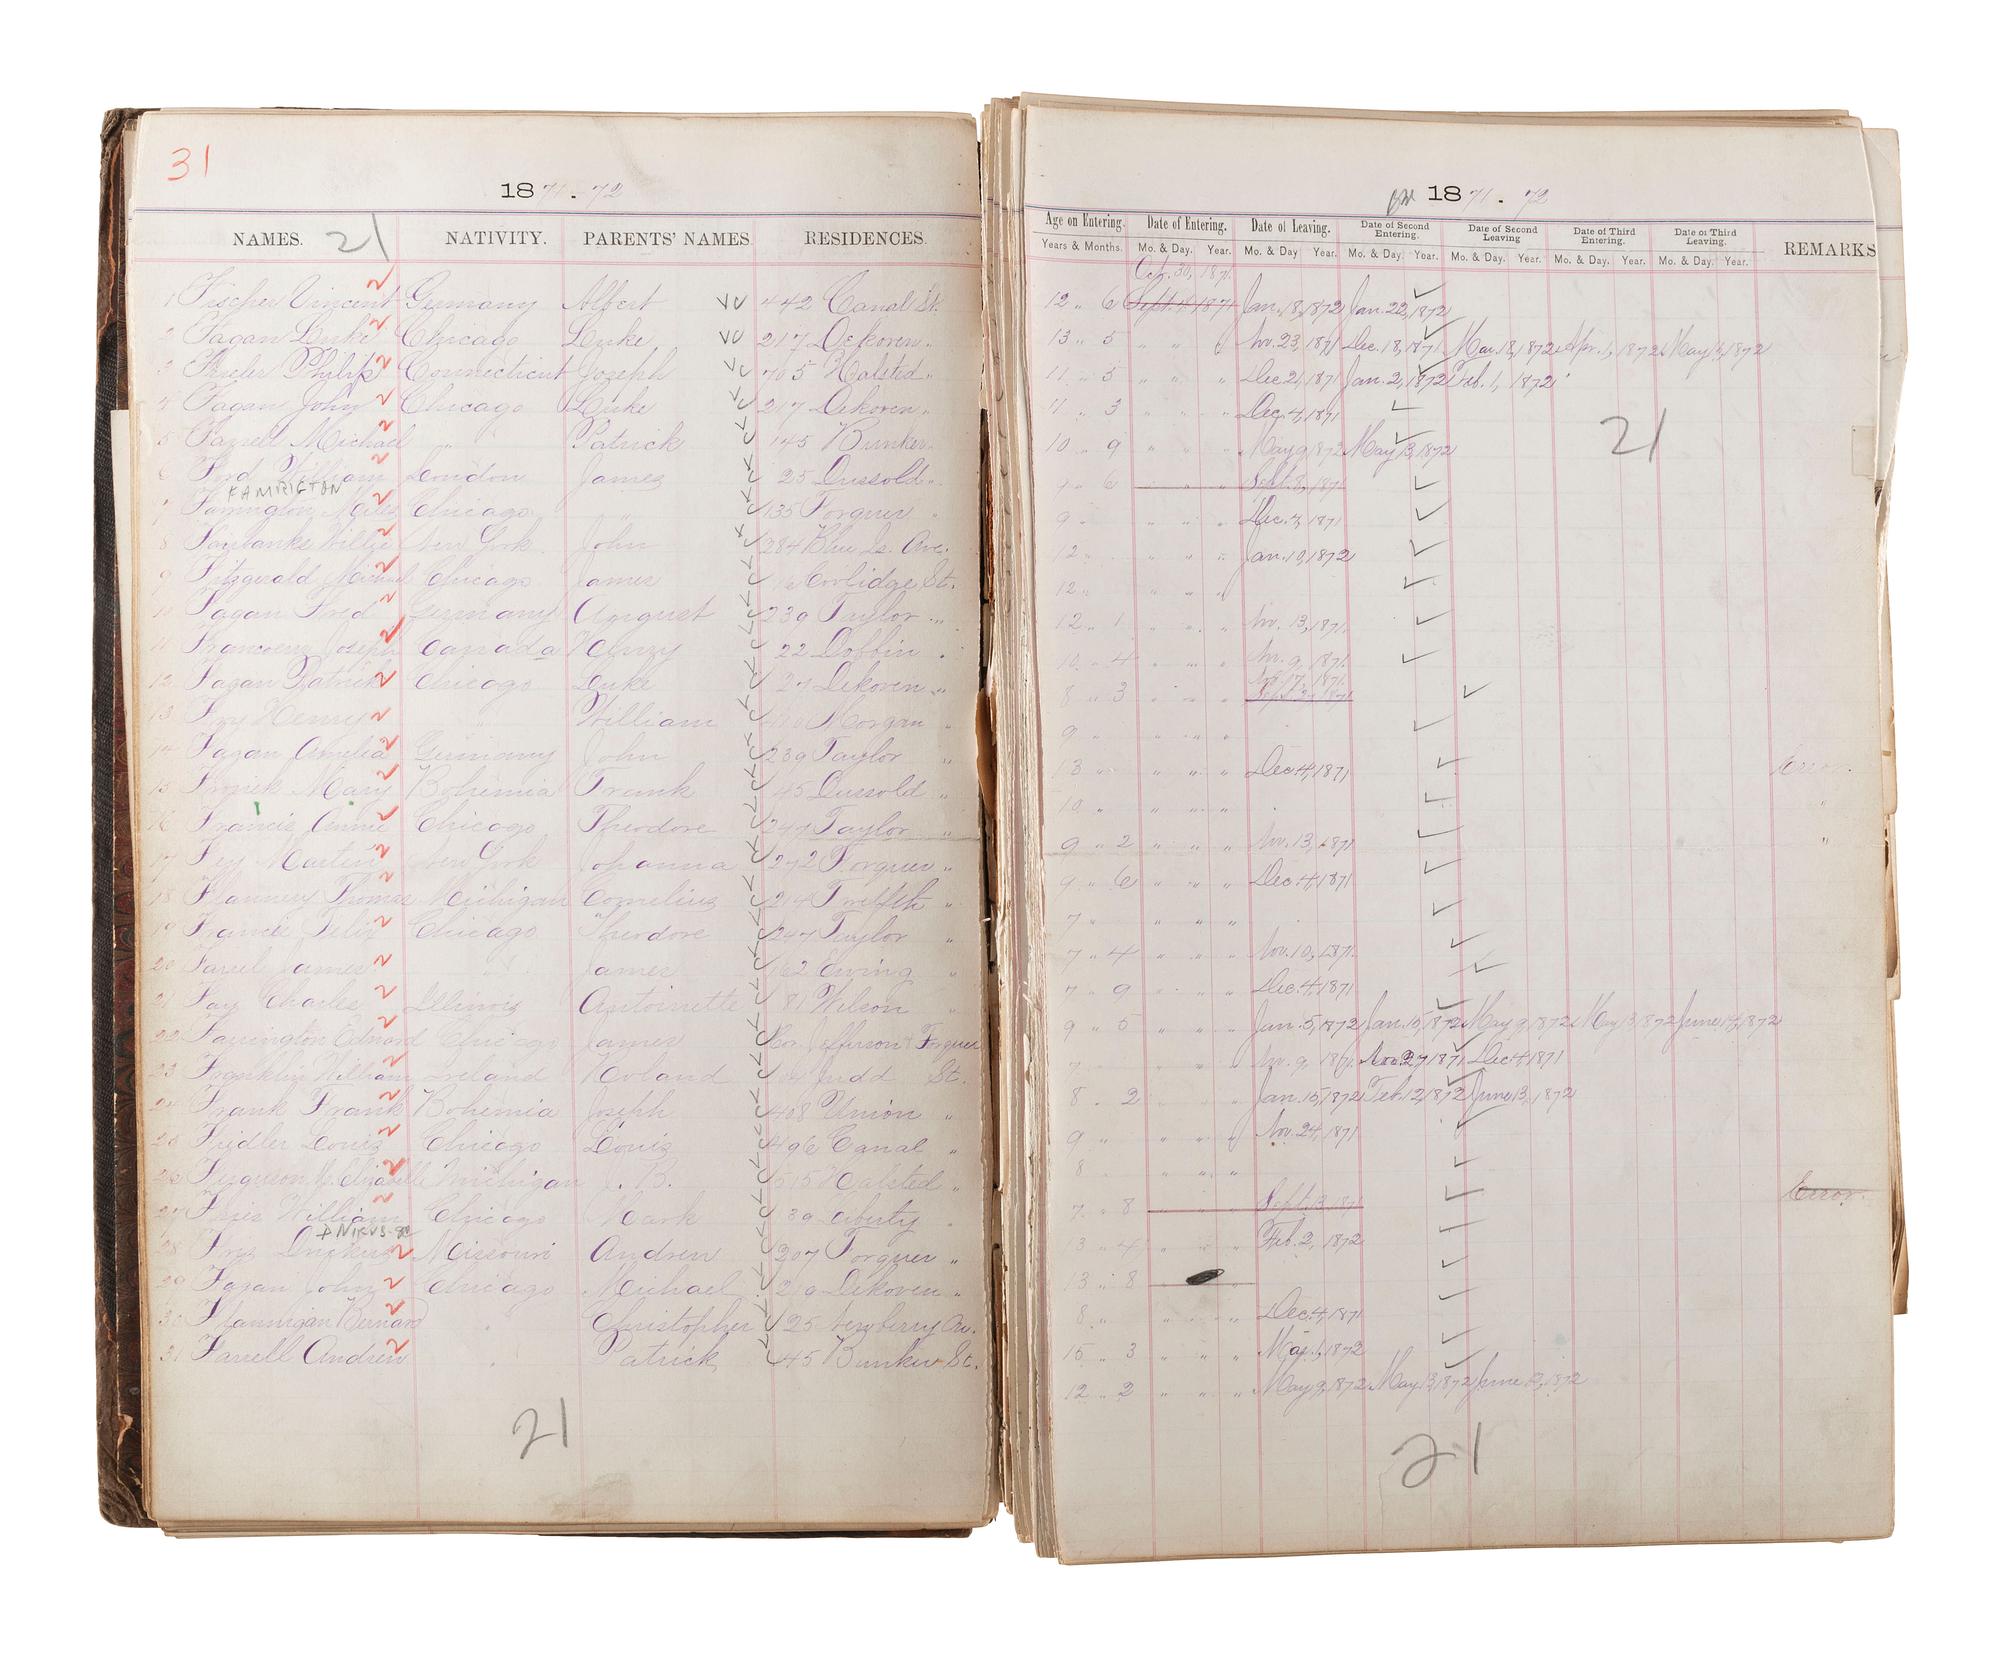 31
1871.72
NAMES. 21 NATIVITY. PARENTS' NAMES. RESIDENCES.
1 Fischer Vincent Germany Albert 442 Canal St.
2 Fagan Luke Chicago Luke 217 Dekoven "
3 Philip Connecticut Joseph 705 Halsted "
4 Fagan John Chicago Luke 217 Dekoven "
5 Farrell Michael " " Patrick 145 Bunker "
6 Ford William London James 25 Dussold "
FAMRIGTON
7 Farrington Chicago " " 135 Forquer "
8 Fairbanks Willie New York John 284 Blue Is. Ave.
9 Fitzgerald Michael Chicago James Coolidge St.
10 Fagan Fred Germany August 239 Taylor "
11 Joseph Canada Henry 22 Dobbin "
12 Fagan Patrick Chicago Luke Dekoven "
13 Fry Henry " William Morgan "
14 Fagan Amelia Germany John 239 Taylor "
15 Mary Bohemia Frank 45 Dussold "
16 Francis Annie Chicago Theodore 247 Taylor "
17 Fey Martin New York Johanna 272 Forquer "
18 Flannery Thomas Michigan Cornelius 214 Twelfth "
19 Francis Felix Chicago Theodore 247 Taylor "
20 James " James 162 Ewing "
21 Fay Charles Illinois Antoinette 81 Wilson "
22 Farrington Edward Chicago James Cor. Jefferson & Forquer
23 Franklin William Ireland Judd St.
24 Frank Frank Bohemia Joseph 408 Union "
25 Fridler Louis Chicago Louis 496 Canal "
26 Ferguson M. Elizabeth Michigan J. B. 515 Halsted "
27 William Chicago Mark 39 Liberty "
28 Missouri Andrew 207 Forquer "
29 Fagan John Chicago Michael 219 Dekoven "
30 Flannigan Bernard " Christopher 25 Newberry Av.
31 Farrell Andrew " Patrick 145 Bunker St.
21
1871. 72
Age on Entering. Date of Entering. Date of Leaving. Date of Second Entering. Date of Second Leaving Date of Third Entering. Date of Third Leaving. REMARKS
Years & Months. Mo. & Day. Year. Mo. & Day Year. Mo. & Day. Year. Mo. & Day. Year. Mo. & Day. Year. Mo. & Day. Year.
Oct. 30, 1871.
12 " 6 Sept. 4, 1871 Jan. 18, 1872 Jan. 22, 1872
13 " 5 " " " Nov. 23, 1871 Dec. 18, 1871 Mar. 18, 1872 Apr. 1, 1872 May 6, 1872
11 " 5 " " " Dec. 21, 1871 Jan. 2, 1872 Feb. 1, 1872
11 " 3 " " " Dec. 4, 1871
21
10 " 9 " " " May 9, 1872 May 13, 1872
9 " 6 " " Sept. 8, 1871
9 " " " " Dec. 7, 1871
12 " " " " Jan. 10, 1872
12 " " " "
12 " 1 " " " Nov. 13, 1871.
10 " 4 " " " Nov. 9, 1871.
Nov. 17, 1871.
8 " 3 " " "
9 " " " "
13 " " " " Dec. 4, 1871 Error.
10 " " " " "
9 " 2 " " " Nov. 13, 1871 "
9 " 6 " " " Dec. 4, 1871
7 " " " "
7 " 4 " " " Nov. 10, 1871.
7 " 9 " " " Dec. 4, 1871
9 " 5 " " " Jan. 5, 1872 Jan. 15, 1872 May 9, 1872 May 13, 1872 June 14, 1872
7 " " " " Nov. 9, 1871. Nov. 27, 1871 Dec. 4, 1871
8 " 2 " " " Jan. 15, 1872 Feb. 12, 1872 June 13, 1872
9 " " " " Nov. 24, 1871
8 " " " "
7 " 8 " " " Sept. 13, 1871 Error.
13 " 4 " " " Feb. 2, 1872
13 " 8 " "
8 " " " " Dec. 4, 1871
15 " 3 " " " 1872
12 " 2 " " " May 9, 1872 May 13, 1872 June 12, 1872
21